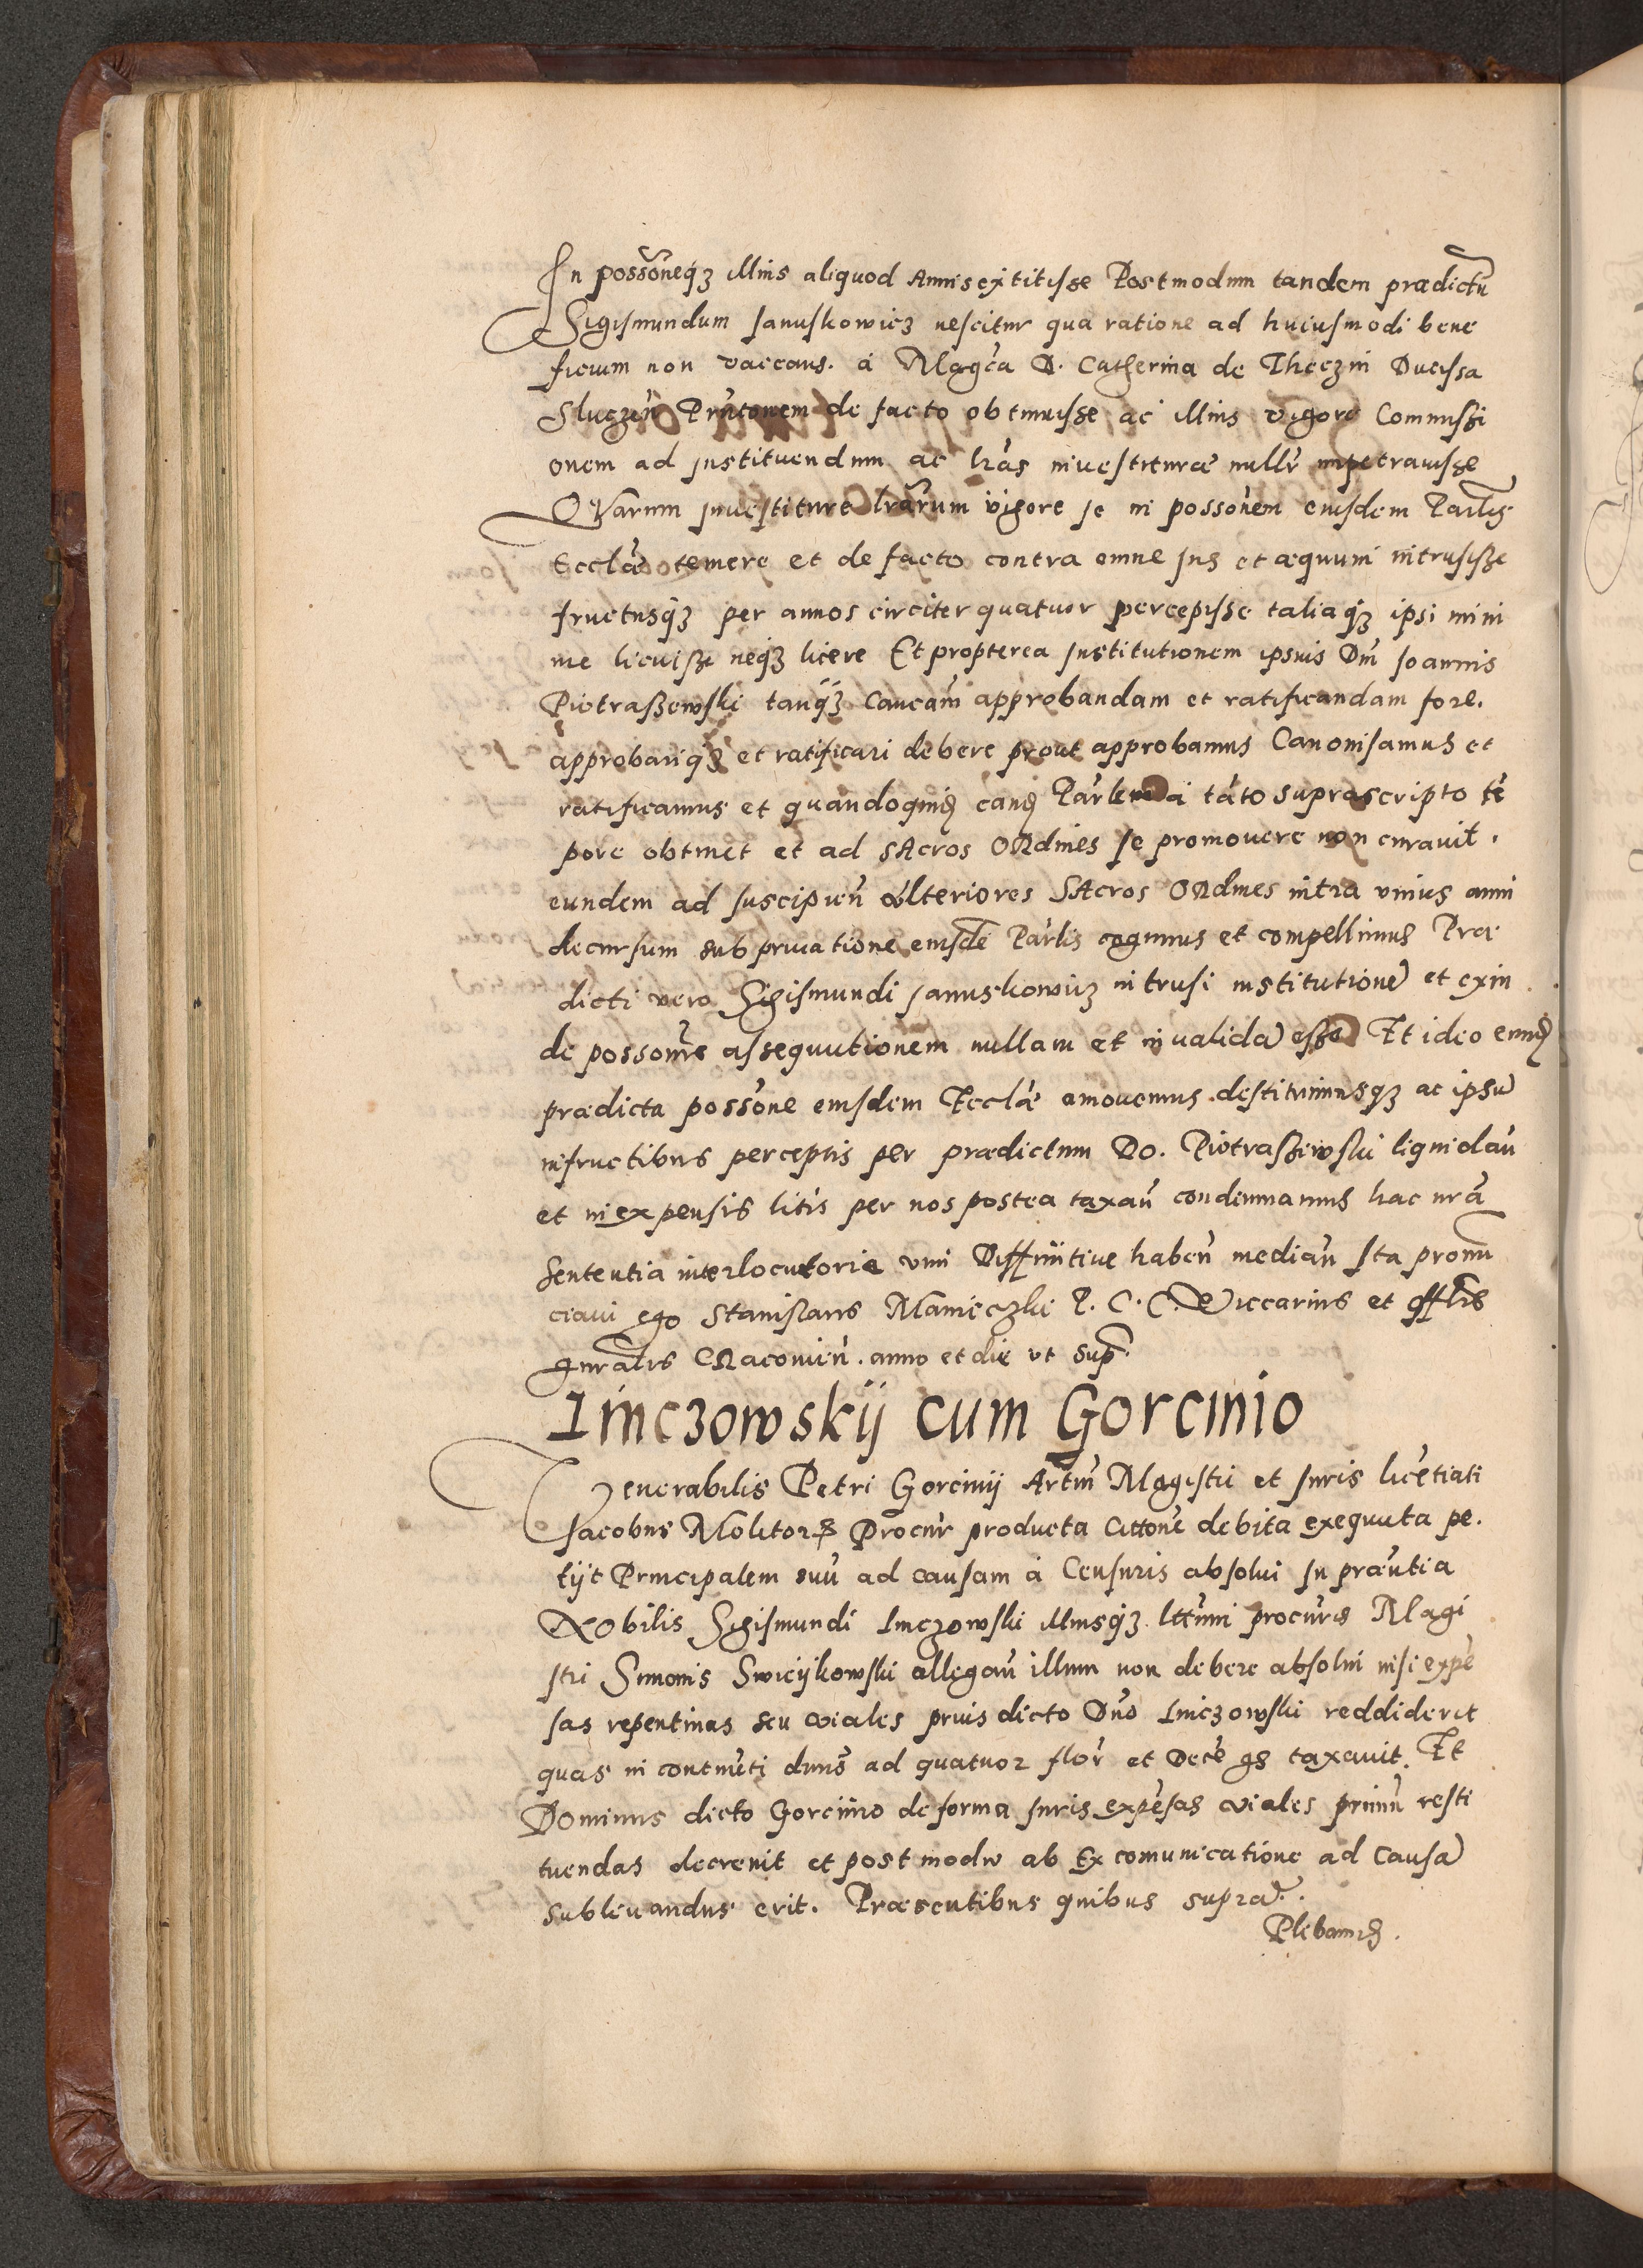 In possōneq3 illius aliquod Annis extitisse Postmodum tandem prædictū
Sigismundum Januskowicz nescitur qua ratione ad huiusmodi bene
ficium non vaccans. á Magcā D. Catherina de Theczin Ducissa
Sluczen̄ Prn̄tonem de facto obtinuisse ac illius vigore Commissi
onem ad Instituendum ac lrās investituræ nullr̄ impetrauisse
QVarum Inuestiture lrārum vigore se in possonēm eiusdem Parlis
Ecclǣ temere et de facto contra omne Jus et æquum intrusisse
fructusq3 per annos circiter quatuor percepisse taliaq3 ipsi mini
me licuisse neq3 licere Et propterea Institutionem ipsius Dn̄i Joannis
Piotraszewski tanq3 Canēam approbandam et ratificandam fore.
approbariq3 et ratificari debere prout approbamus Canonisamus et
ratificamus et quandoquidē eandē Parlem á tāto suprascripto tē
pore obtinet et ad SAcros ORdines se promouere non curauit.
eundem ad suscipien̄ vlteriores SAcros ORdines intra vnius anni
decursum sub priuatione eiusdē Parlis cogimus et compellimus Præ
dicti vero Sigismundi Januskowicz intrusi institutionē et exin
de possonis assequutionem nullam et inualidā esse Et ideo eundē
prædicta possōne eiusdem Ecclǣ amouemus destituimusq3 ac ipsū
in fructibus perceptis per prædictum Do. Piotraszewski liquidan̄
et in expensis litis per nos postea taxan̄ condemnamus hac nrā
Sententia interlocutoria vim Diffinitiue haben̄ median̄ Ita pronū
ciaui ego Stanislaus Manieczki P. C. C. Viccarius et offlis
gnrālis CRacouien̄. anno et die vt sup̄.
Imczowskij cum Gorcinio
Venerabilis Petri Gorcinij Artiū Magistri et Juris licētiati
Jacobus Molitoris Procur̄ producta Cittonē debita exequuta pe.
tijt Principalem suū ad causam á Censuris absolui In præn̄tia
NObilis Sigismundi Imczowski illiusq3 lttimi procur̄is Magi
stri Simonis Swieijkowski allegan̄ illum non debere absolui nisi expē
sas repentinas seu viales prius dicto Dn̄o Imczowski reddiderit
quas in continēti dn̄us ad quatuor flor̄ et Decē gs taxauit. Et
Dominus dicto Gorcinio de forma Juris expēsas viales primū resti
tuendas decreuit et post modū ab Excomunicatione ad Causā
subleuandus erit. Præsentibus quibus supra.
Plebanus.